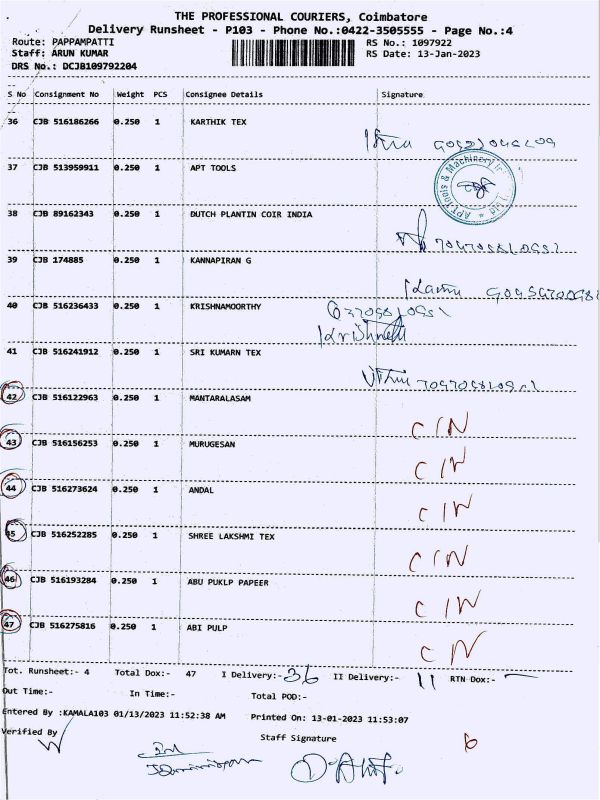 THE PROFESSIONAL COURIERS, Coimbatore
Delivery Runsheet - P103 - Phone No.:0422-3505555 - Page No.:4
Route: PAPPAMPATTI RS No.: 1097922
Staff: ARUN KUMAR RS Date: 13-Jan-2023
DRS No.: DCJB109792204
S No Consignment No Weight PCS Consignee Details Signature
36 CJB 516186266 0.250 1 KARTHIK TEX
37 CJB 513959911 0.250 1 APT TOOLS
APT Tools & Machinery
38 CJB 89162343 0.250 1 DUTCH PLANTIN COIR INDIA
39 CJB 174885 0.250 1 KANNAPIRAN G
40 CJB 516236433 0.250 1 KRISHNAMOORTHY
41 CJB 516241912 0.250 1 SRI KUMARN TEX
42 CJB 516122963 0.250 1 MANTARALASAM
C/N
43 CJB 516156253 0.250 1 MURUGESAN
C/N
44 CJB 516273624 0.250 1 ANDAL
C/N
45 CJB 516252285 0.250 1 SHREE LAKSHMI TEX
C/N
46 CJB 516193284 0.250 1 ABU PUKLP PAPEER
C/N
47 CJB 516275816 0.250 1 ABI PULP
C/N
Tot. Runsheet:- 4 Total Dox:- 47 I Delivery:- 36 II Delivery:- 11 RTN Dox:- -
Out Time:- In Time:- Total POD:-
Entered By :KAMALA103 01/13/2023 11:52:38 AM Printed On: 13-01-2023 11:53:07
Verified By Staff Signature